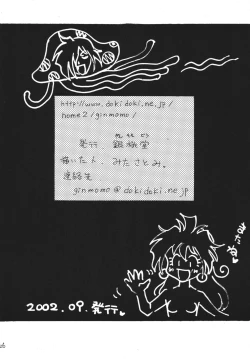 http://www.dokidoki.ne.jp/
home2/ginmomo/
発行. 銀桃堂
描いた人. みたさとみ。
連絡先
ginmomo@dokidoki.ne.jp
2002.09.発行